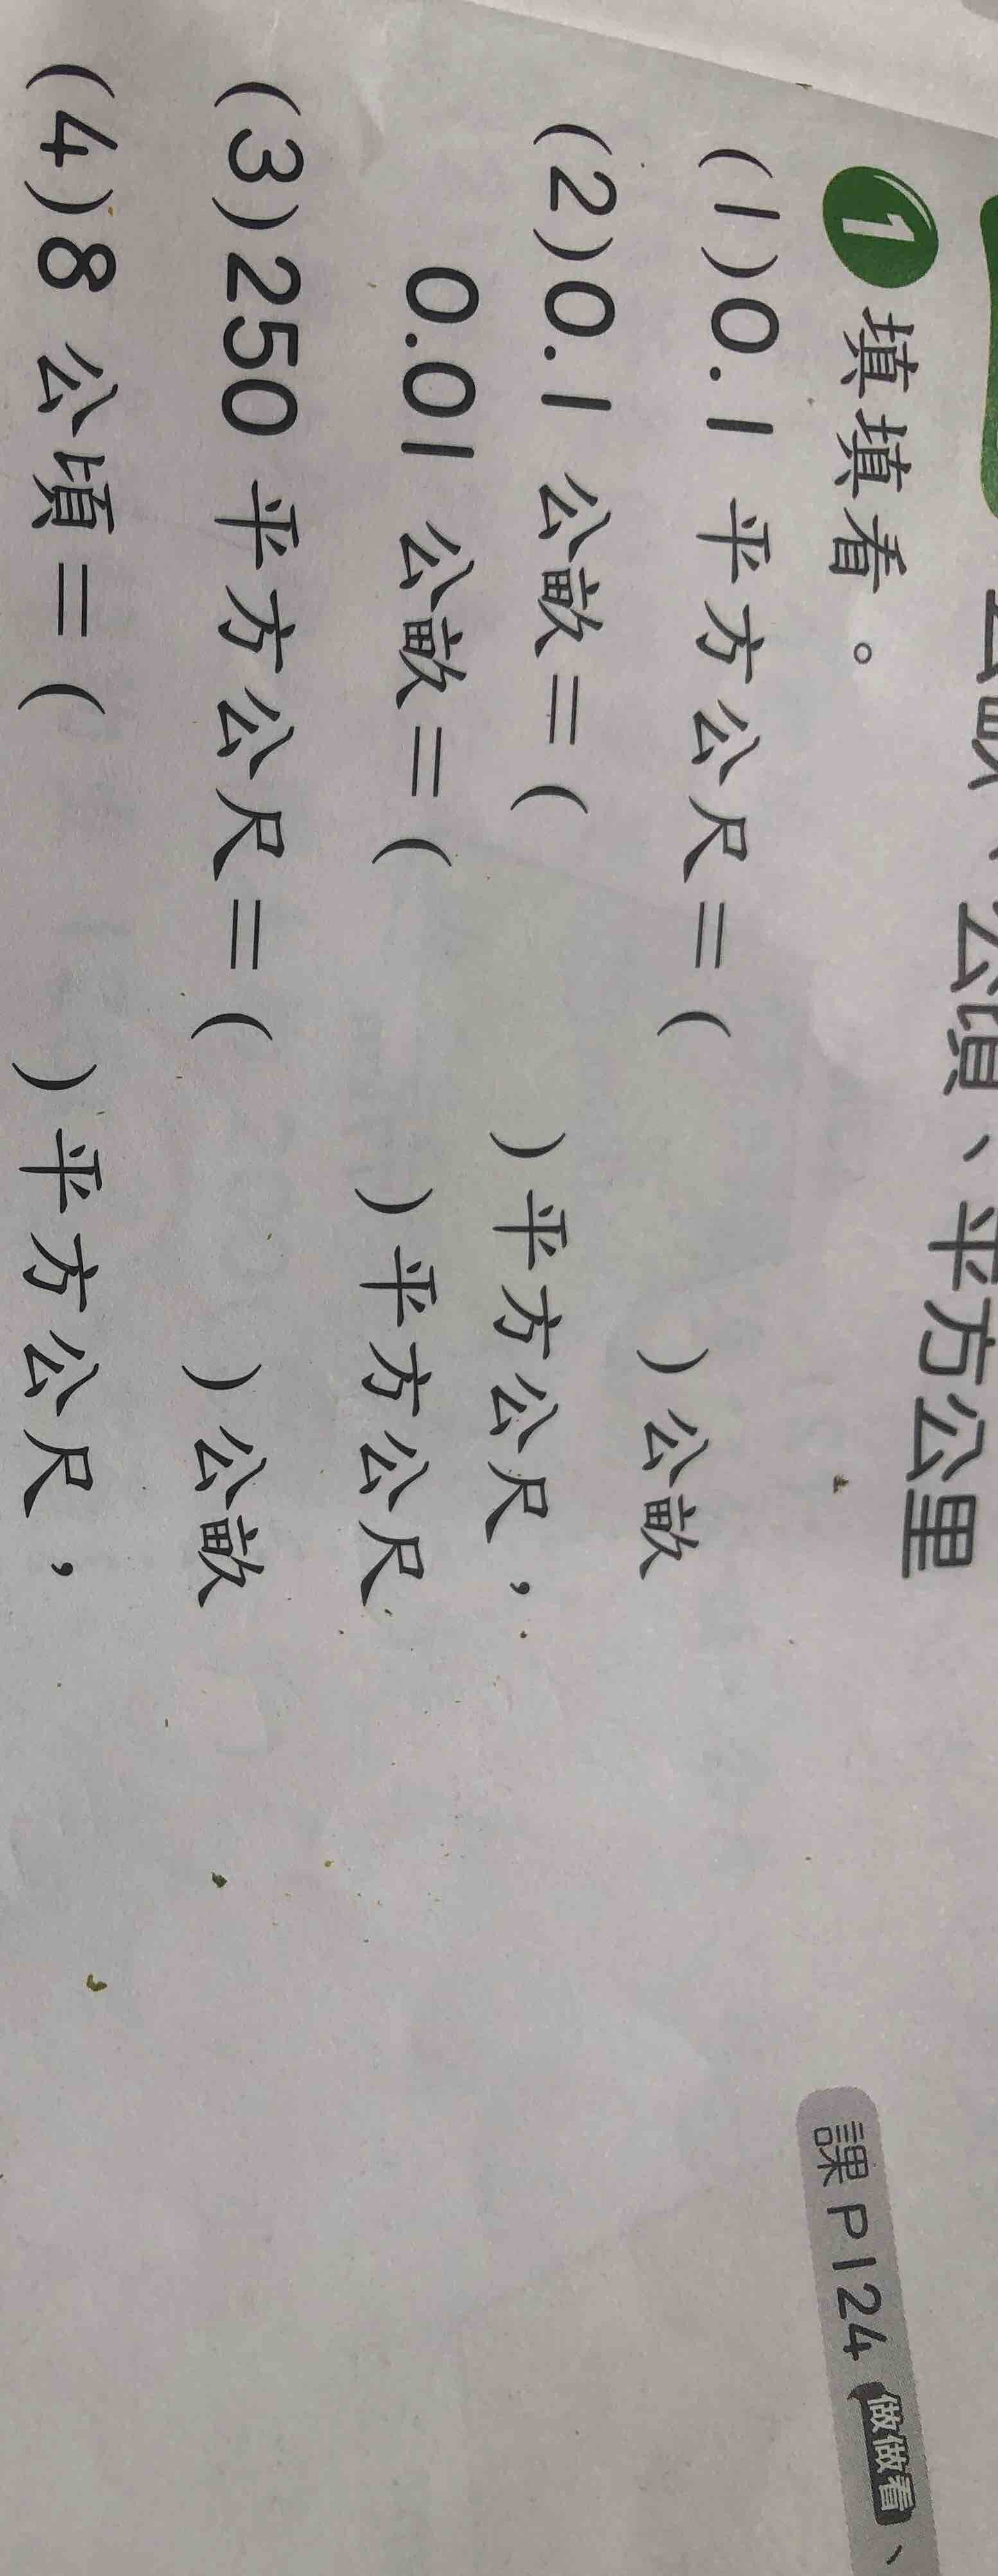 公頃、平方公里
1 填填看。
課P124 做做看、
(1)0.1 平方公尺=( )公畝
(2)0.1 公畝=( )平方公尺，
0.01 公畝=( )平方公尺
(3)250 平方公尺=( )公畝
(4)8 公頃=( )平方公尺，